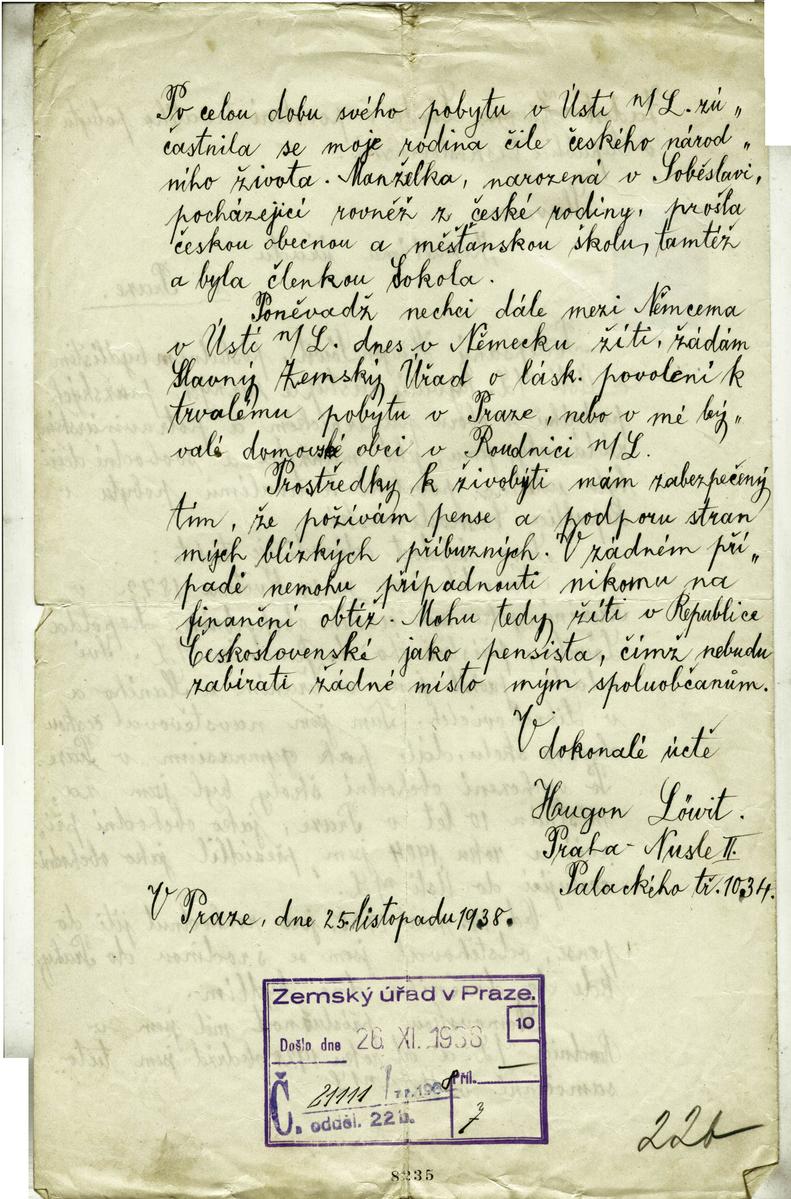 Po celou dobu svého pobytu v Ústí n/L. zú„
častnila se moje rodina čile českého národ„
ního života. Manželka, narozená v Soběslavi,
pocházející rovněž z české rodiny, prošla
českou obecnou a měšťanskou školu, tamtéž
a byla členkou Sokola.
Poněvadž nechci dále mezi Němcema
v Ústí n/L. dnes v Německu žíti, žádám
Slavný Zemský Úřad o lásk. povolení k
trvalému pobytu v Praze, nebo v mé bý„
valé domovské obci v Roudnici n/L.
Prostředky k živobytí mám zabezpečený
tím, že požívám pense a podporu stran
mých blízkých příbuzných. V žádném pří„
padě nemohu připadnouti nikomu na
finanční obtíž. Mohu tedy žíti v Republice
Československé jako pensista, čímž nebudu
zabírati žádné místo mým spoluobčanům.
V dokonalé úctě
Hugon Löwit.
Praha - Nusle II.
Palackého tř. 1034.
V Praze, dne 25. listopadu 1938.
Zemský úřad v Praze.
10
Došlo dne 26. XI. 1938
Č. 21111 / 1938 Příl. —
odděl. 22b. 7
22b
8235